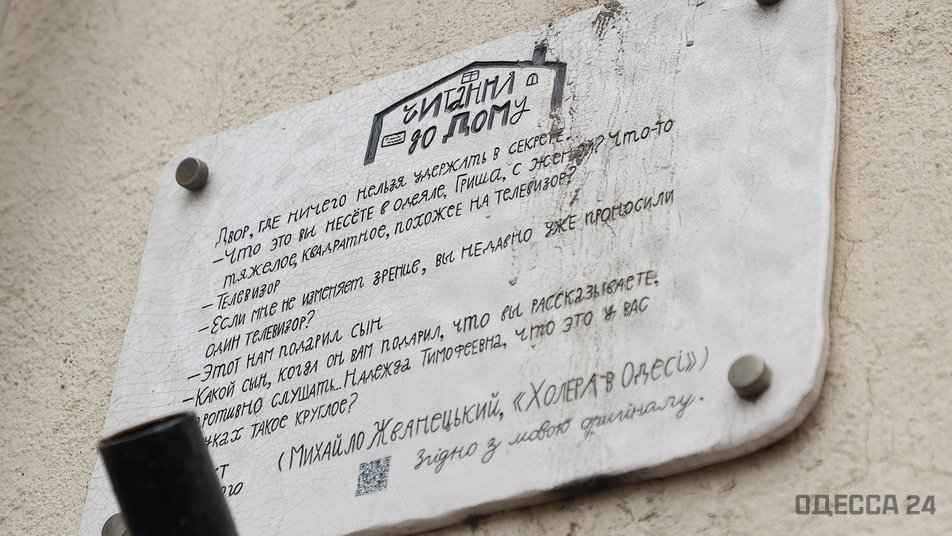 ЧИТАННЯ
ДО ДОМУ
ДВОР, ГДЕ НИЧЕГО НЕЛЬЗЯ УДЕРЖАТЬ В СЕКРЕТЕ.
– ЧТО ЭТО ВЫ НЕСЁТЕ В ОДЕЯЛЕ, ГРИША, С ЖЕНОЙ? ЧТО-ТО
ТЯЖЕЛОЕ, КВАДРАТНОЕ, ПОХОЖЕЕ НА ТЕЛЕВИЗОР?
– ТЕЛЕВИЗОР
– ЕСЛИ МНЕ НЕ ИЗМЕНЯЕТ ЗРЕНИЕ, ВЫ НЕДАВНО УЖЕ ПРОНОСИЛИ
ОДИН ТЕЛЕВИЗОР?
– ЭТОТ НАМ ПОДАРИЛ СЫН
– КАКОЙ СЫН, КОГДА ОН ВАМ ПОДАРИЛ, ЧТО ВЫ РАССКАЗЫВАЕТЕ,
ПРОТИВНО СЛУШАТЬ... НАДЕЖДА ТИМОФЕЕВНА, ЧТО ЭТО У ВАС
ТАКОЕ КРУГЛОЕ?
(МИХАЙЛО ЖВАНЕЦЬКИЙ, «ХОЛЕРА В ОДЕСІ»)
Згідно з мовою оригіналу.
ОДЕССА 24